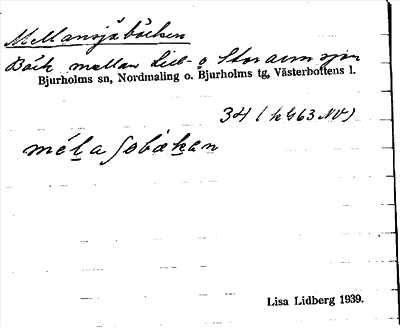 Mellansjöbäcken
Bäck mellan Lill- o Storarmsjön
Bjurholms sn, Nordmaling o. Bjurholms tg, Västerbottens l.
34 (k 463 NV)
Lisa Lidberg 1939.